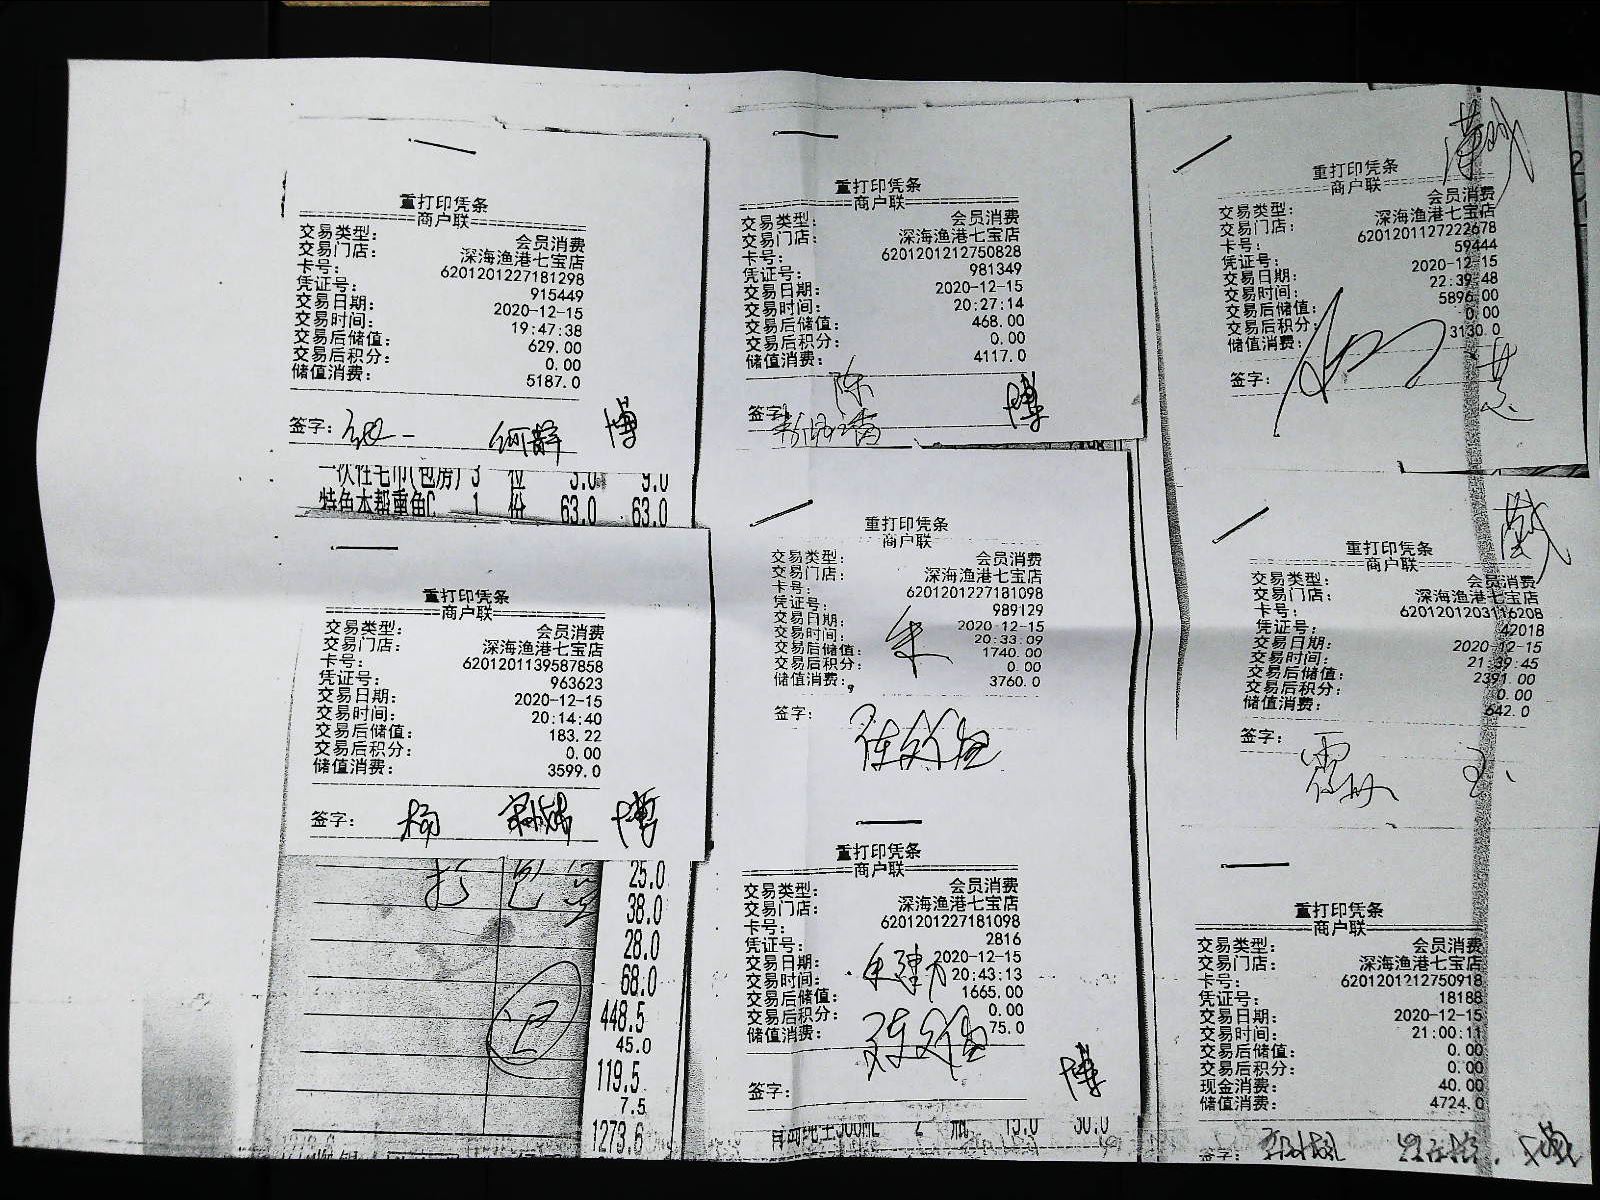 重打印凭条
商户联
交易类型: 会员消费
交易门店: 深海渔港七宝店
卡号: 6201201227181298
凭证号: 915449
交易日期: 2020-12-15
交易时间: 19:47:38
交易后储值: 629.00
交易后积分: 0.00
储值消费: 5187.0
签字: 何静 博
一次性毛巾(包房) 3 位 3.0 9.0
特色本帮熏鱼C 1 份 63.0 63.0
重打印凭条
商户联
交易类型: 会员消费
交易门店: 深海渔港七宝店
卡号: 6201201139587858
凭证号: 963623
交易日期: 2020-12-15
交易时间: 20:14:40
交易后储值: 183.22
交易后积分: 0.00
储值消费: 3599.0
签字: 杨 博
打包 25.0
38.0
28.0
68.0
448.5
45.0
119.5
7.5
1273.6
重打印凭条
商户联
交易类型: 会员消费
交易门店: 深海渔港七宝店
卡号: 6201201212750828
凭证号: 981349
交易日期: 2020-12-15
交易时间: 20:27:14
交易后储值: 468.00
交易后积分: 0.00
储值消费: 4117.0
陈
签字: 博
重打印凭条
商户联
交易类型: 会员消费
交易门店: 深海渔港七宝店
卡号: 6201201227181098
凭证号: 989129
交易日期: 2020-12-15
交易时间: 20:33:09
交易后储值: 1740.00
交易后积分: 0.00
储值消费: 3760.0
朱
签字:
重打印凭条
商户联
交易类型: 会员消费
交易门店: 深海渔港七宝店
卡号: 6201201227181098
凭证号: 2816
交易日期: 2020-12-15
交易时间: 20:43:13
交易后储值: 1665.00
交易后积分: 0.00
储值消费: 75.0
签字: 博
500ML 2 瓶 15.0 30.0
重打印凭条
商户联
交易类型: 会员消费
交易门店: 深海渔港七宝店
卡号: 6201201127222678
凭证号: 59444
交易日期: 2020-12-15
交易时间: 22:39:48
交易后储值: 5896.00
交易后积分: 0.00
储值消费: 3130.0
签字:
重打印凭条
商户联
交易类型: 会员消费
交易门店: 深海渔港七宝店
卡号: 6201201203116208
凭证号: 42018
交易日期: 2020-12-15
交易时间: 21:39:45
交易后储值: 2391.00
交易后积分: 0.00
储值消费: 642.0
签字:
重打印凭条
商户联
交易类型: 会员消费
交易门店: 深海渔港七宝店
卡号: 6201201212750918
凭证号: 18188
交易日期: 2020-12-15
交易时间: 21:00:11
交易后储值: 0.00
交易后积分: 0.00
现金消费: 40.00
储值消费: 4724.0
签字: